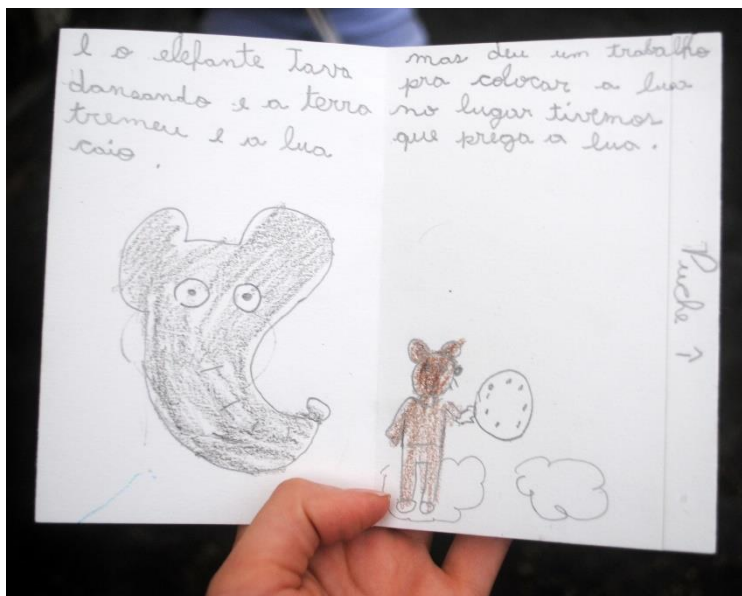 e o elefante Tava
dansando e a terra
tremeu e a lua
caio.
mas deu um trabalho
pra colocar a lua
no lugar tivemos
que prega a lua.
Puche ↑